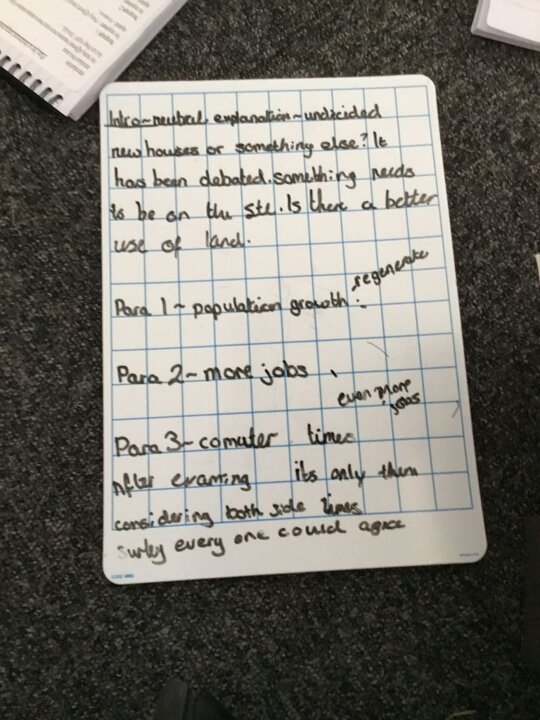 Intro~neutral explanation~undicided
new houses or something else? It
has been debated. something needs
to be on the ste. Is there a better
use of land.
regenerate
Para 1~ population growth :-
Para 2~ more jobs
even more
jobs
Para 3~ comuter times
After examing its only them
considering both side times
Surley every one could agree